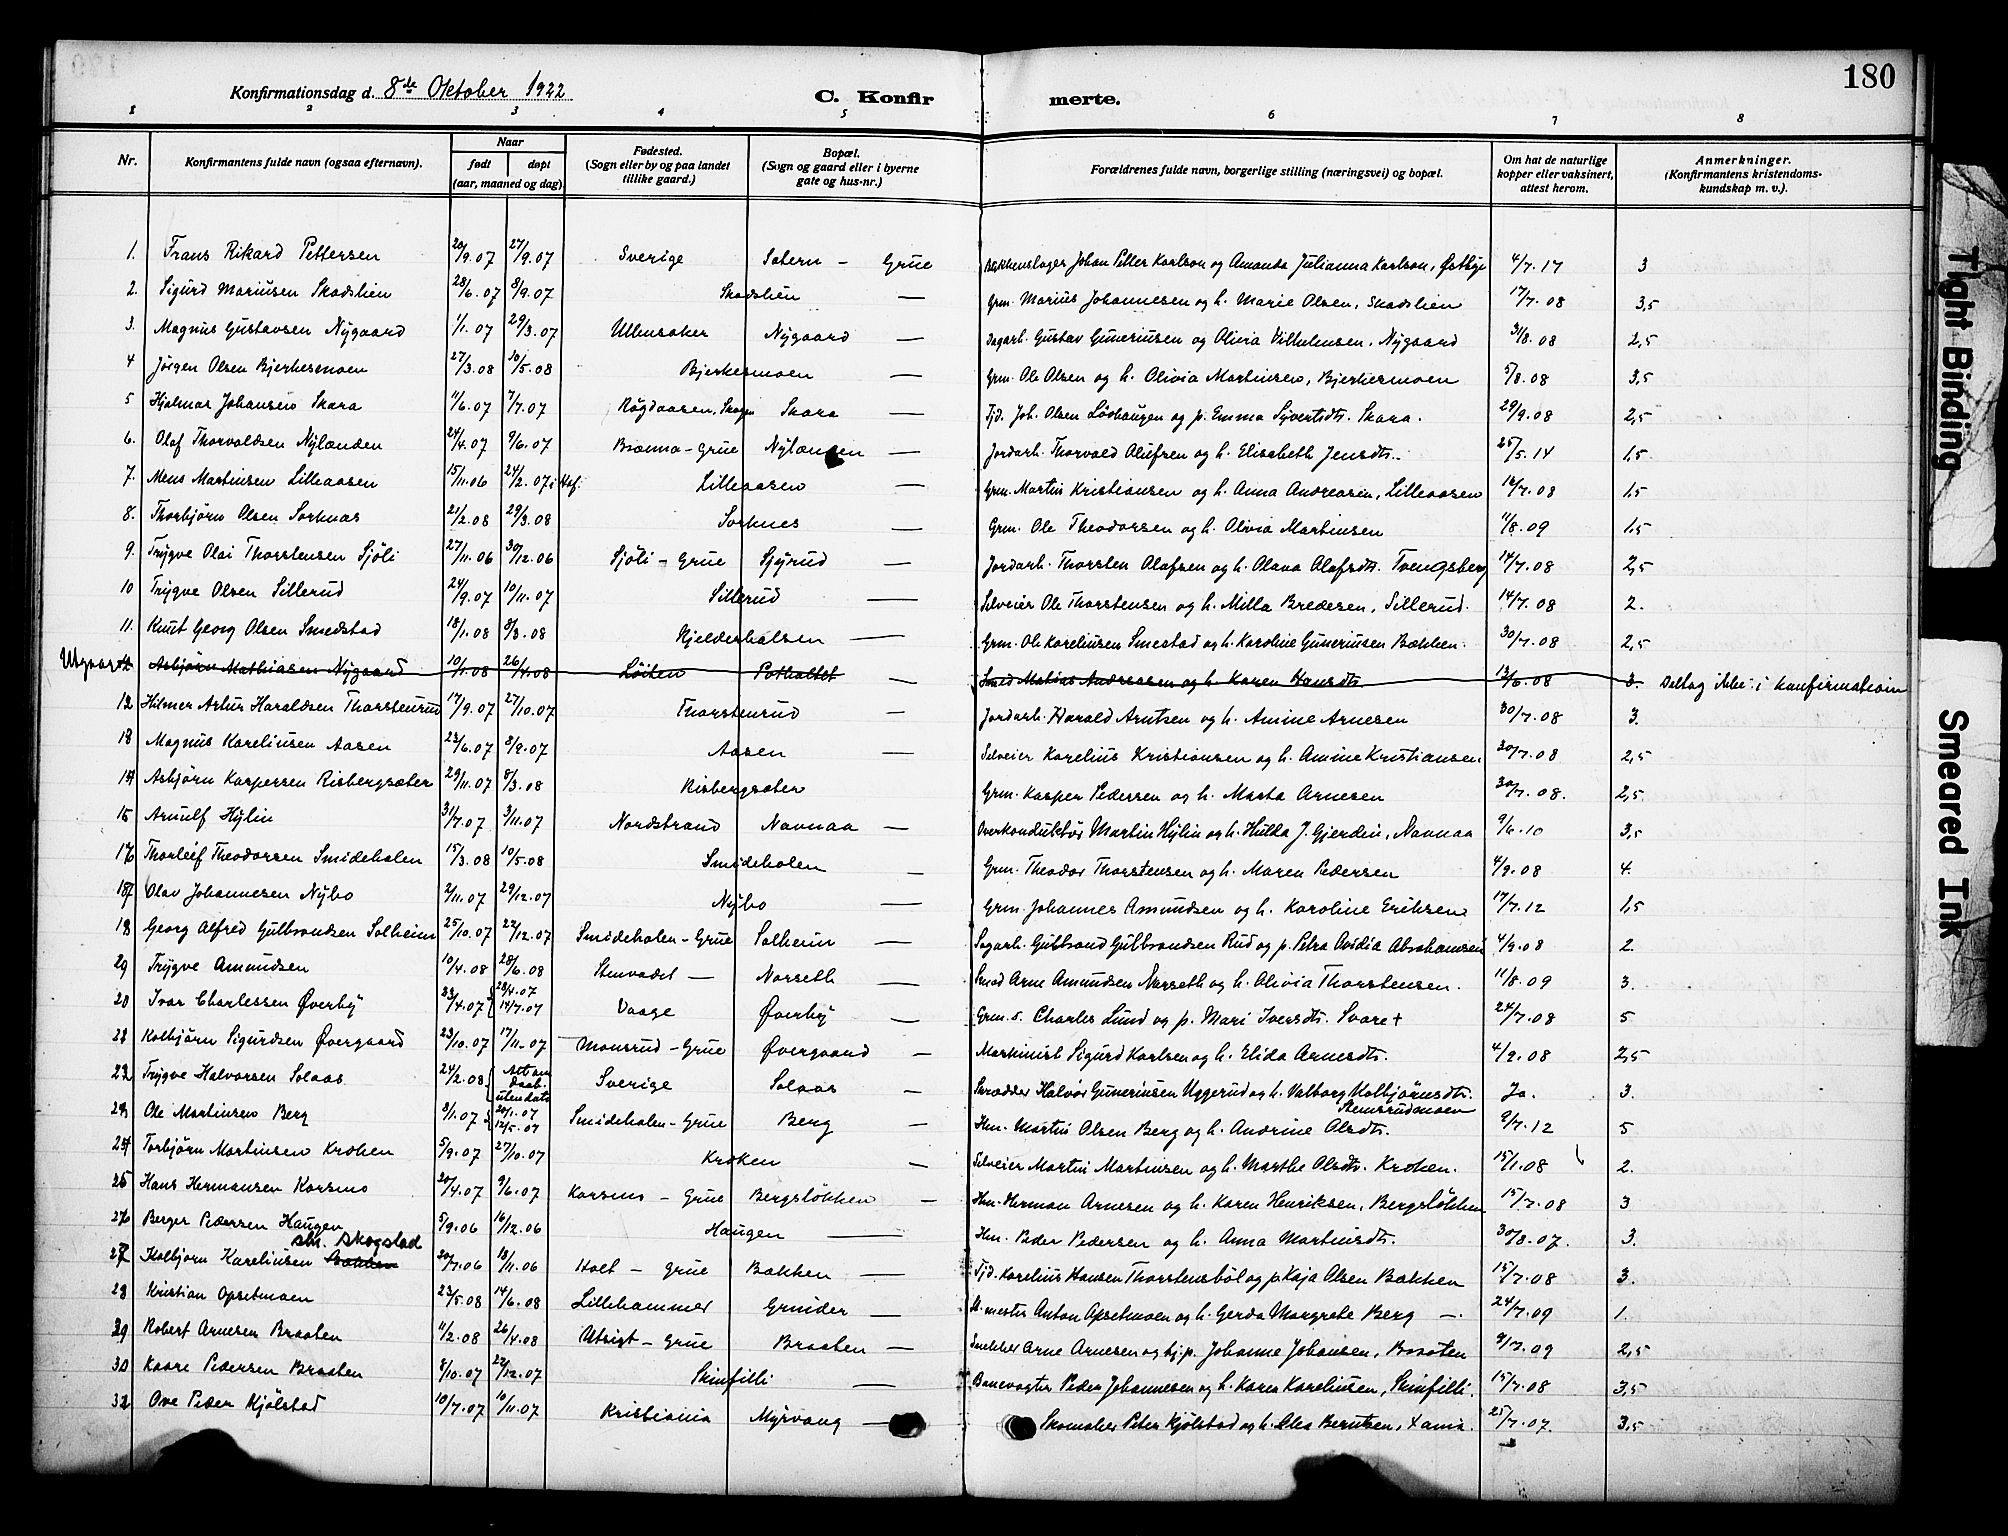 180
Konfirmationsdag d. 8de Oktober 1922
C. Konfir merte.
1 2 3 4 5 6 7 8
Nr. Konfirmantens fulde navn (ogsaa efternavn). Naar født døpt (aar, maaned og dag) Fødested. (Sogn eller by og paa landet tillike gaard.) Bopæl. (Sogn og gaard eller i byerne gate og hus-nr.) Forældrenes fulde navn, borgerlige stilling (næringsvei) og bopæl. Om hat de naturlige kopper eller vaksinert, attest herom. Anmerkninger. (Konfirmantens kristendomskundskap m. v.).
1. Frans Rikard Pettersen 20/9.07 27/9.07 Sverige Sætern - Grue Johan Petter Karlson og Amanda Julianna Karlson, Østbye 4/7.17 3
2. Sigurd Mariusen Skadslien 28/6.07 8/9.07 Skadslien — Grm. Marius Johannesen og h. Marie Olsen, Skadslien 17/7.08 3,5
3. Magnus Gustavsen Nygaard 1/1.07 29/3.07 Ullensaker Nygaard — Dagarb. Gustav Guneriusen og Olivia Vilhelmsen, Nygaard 31/8.08 2,5
4 Jørgen Olsen Bjerkesmoen 27/3.08 30/5.08 Bjerkesmoen — Grm. Ole Olsen og h. Olivia Martinsen, Bjerkesmoen 5/8.08 3,5
5 Hjalmar Johansen Skara 11/6.07 7/7.07 Røgdaasen, Skogn Skara — Tjd. Joh. Olsen Løvhaugen og p. Emma Syvertsdt. Skara. 29/9.08 2,5
6. Olaf Thorvaldsen Nylænden 24/4.07 9/6.07 Brænna - Grue Nylænden — Jordarb. Thorvald Olufsen og h. Elisabeth Jensdt. 25/5.14 1,5
7. Mens Martinsen Lilleaasen 15/11.06 24/2.07 i Asf. Lilleaasen — Grm. Martin Kristiansen og h. Anna Andreasen, Lilleaasen 14/7.08 1,5
8. Thorbjörn Olsen Sorknæs 21/2.08 29/3.08 Sorknes — Grm. Ole Theodorsen og h. Olivia Martinsen 11/8.09 1,5
9. Trygve Olai Thorstensen Sjöli 27/11.06 30/12.06 Sjöli - Grue Sjyrud — Jordarb. Thorsten Olafsen og h. Olava Olafsdt. Tvengsberg 14/7.08 2,5
10 Trygve Olsen Sillerud 24/9.07 10/11.07 Sillerud — Selveier Ole Thorstensen og h. Milla Bredesen, Sillerud. 14/7.08 2.
11. Knut Georg Olsen Smedstad 18/1.08 8/3.08 Kjelderhalsen — Grm. Ole Kareliusen Smestad og h. Karoline Guneriusen Bækken. 30/7.08 2,5
Utgaar 12 Asbjørn Mathiasen Nygaard 10/1.08 26/4.08 Løiten Potholtet — Smed Matias Andreasen og h. Karen Hansdt. 13/6.08 3. Deltog ikke i konfirmationen
12 Hilmer Artur Haraldsen Thorstenrud 17/9.07 27/10.07 Thorstenrud — Jordarb. Harald Arntsen og h. Amine Arnesen 30/7.08 3.
13 Magnus Kareliusen Aasen 23/6.07 8/9.07 Aasen — Selveier Karelius Kristiansen og h. Amine Kristiansen. 30/7.08 2,5
14 Asbjörn Kaspersen Risbergsæter 29/11.07 8/3.08 Risbergsæter Grm. Kasper Pedersen og h. Marta Arnesen 30/7.08. 2,5.
15 Arnulf Hylin 31/7.07 3/11.07 Nordstrand Navnaa — Overkonduktör Martin Hylin og h. Hulda J. Gjerdin, Navnaa 9/6.10 3,5
16 Thorleif Theodorsen Smideholen 15/3.08 10/5.08 Smideholen — Grm. Theodor Thorstensen og h. Maren Pedersen 4/9.08 4.
17 Olav Johannesen Nybo 2/11.07 29/12.07 Nybo — Grm. Johannes Amundsen og h. Karoline Eriksen 17/7.12 1,5
18 Georg Alfred Gulbrandsen Solheim 25/10.07 22/12.07 Smideholen - Grue Solheim — Sagarb. Gulbrand Gulbrandsen Rud og p. Petra Ovidia Abrahamsen 4/9.08 2.
29 Trygve Amundsen 10/4.08 28/6.08 Stenvadet — Norseth — Smed Arne Amundsen Norseth og h. Olivia Thorstensen. 11/8.09 3.
20 Ivar Charlessen Øverby 23/4.07 { 28/4.07 14/7.07 Vaage Øverby — Grm. s. Charles Lund og p. Mari Iversdt. Svare + 24/7.08 5
22 Kolbjörn Sigurdsen Øvergaard 23/10.07 17/11-07 Monsrud - Grue Øvergaard — Martinius Sigurd Karlsen og h. Elida Arnesdt. 4/9.08 2,5
23 Trygve Halvorsen Solaas 24/2.08 { Att om daab utendato Sverige Solaas — Skrædder Halvor Guneriusen Uggerud og h. Valborg Kolbjörnsdt. Stemsrudmoen Ja. 3.
23 Ole Martinsen Berg 3/1.07 { 20/1.07 12/5.07 Smideholen - Grue Berg — Hm. Martin Olsen Berg og h. Andrine Olsdt. 9/7.12 5
24 Torbjörn Martinsen Kroken 5/9.07 27/10.07 Kroken — Selveier Martin Martinsen og h. Marthe Olsdt. Kroken. 15/1.08 2.
25 Hans Hermansen Korsmo 20/4.07 9/6.07 Korsmo - Grue Bergsløkken — Hm. Herman Arnesen og h. Karen Henriksen, Bergsløkken 15/7.08 3
26 Berger Pedersen Haugen 5/9.06 16/12.06 Haugen — Hm. Peder Pedersen og h. Anna Martinsdt. 30/8.07. 3.
skr. Skogstad
27 Kolbjörn Kareliusen Bakken 20/7.06 18/11.06 Holt - Grue Bakken — Tjd. Karelius Hansen Thorstensböl og p. Kaja Olsen Bakken 15/7.08 3.
28 Kristian Opsetmoen 23/5.08 14/6.08 Lillehammer Grinder — St.mester Anton Opsetmoen og h. Gerda Margrete Berg —. 24/7.09 1.
29 Robert Arnesen Braaten 11/2.08 26/4.08 Utsigt - Grue Braaten — Snekker Arne Arnesen og hj.p. Johanne Johansen, Braaten 9/12.09 2,5
30 Kaare Pedersen Braaten 8/10.07 22/12.07 Skinfilli — Banevogter Peder Johannesen og h. Karen Kareliusen, Skinfilli. 15/7.08 3,5
32 Ove Peder Kjölstad 10/7.07 10/11.07 Kristiania Myrvang — Skomaker Peter Kjölstad og h. Elea Berntsen, Xania. 25/7.07. 3,5
Tight Binding
Smeared Ink